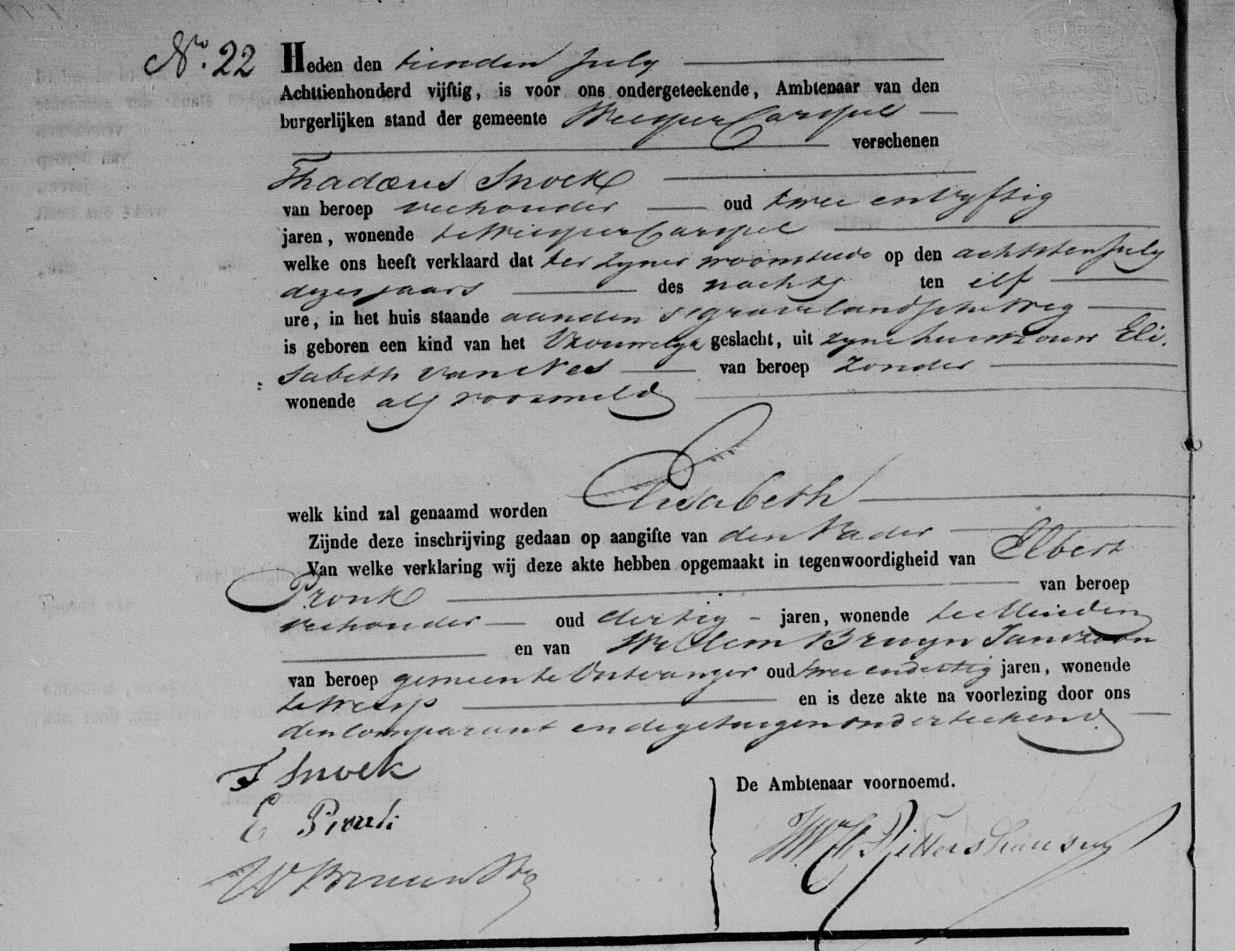 No. 22 Heden den tienden July
Achttienhonderd vijftig, is voor ons ondergeteekende, Ambtenaar van den
burgerlijken stand der gemeente WeesperCarspel
verschenen
Thadæus Snoek
van beroep veehouder oud twee envyftig
jaren, wonende te WeesperCarspel
welke ons heeft verklaard dat ter zyner woonstede op den achtsten July
dezes jaars des nachts ten elf
ure, in het huis staande aan den s'gravelandschen weg
is geboren een kind van het Vrouwelyk geslacht, uit zyne huisvrouw Eli-
sabeth van Nes van beroep zonder
wonende als voormeld
welk kind zal genaamd worden Elisabeth
Zijnde deze inschrijving gedaan op aangifte van den Vader
Van welke verklaring wij deze akte hebben opgemaakt in tegenwoordigheid van Elbert
Pronk van beroep
veehouder oud dertig jaren, wonende te Muiden
en van Willem Bruyn Janszoon
van beroep gemeente Ontvanger oud twee endertig jaren, wonende
te Weesp en is deze akte na voorlezing door ons
den Comparant en de getuigen onderteekend
T Snoek
E Pronk
W Bruijn Jzn
De Ambtenaar voornoemd.
Rittershausen